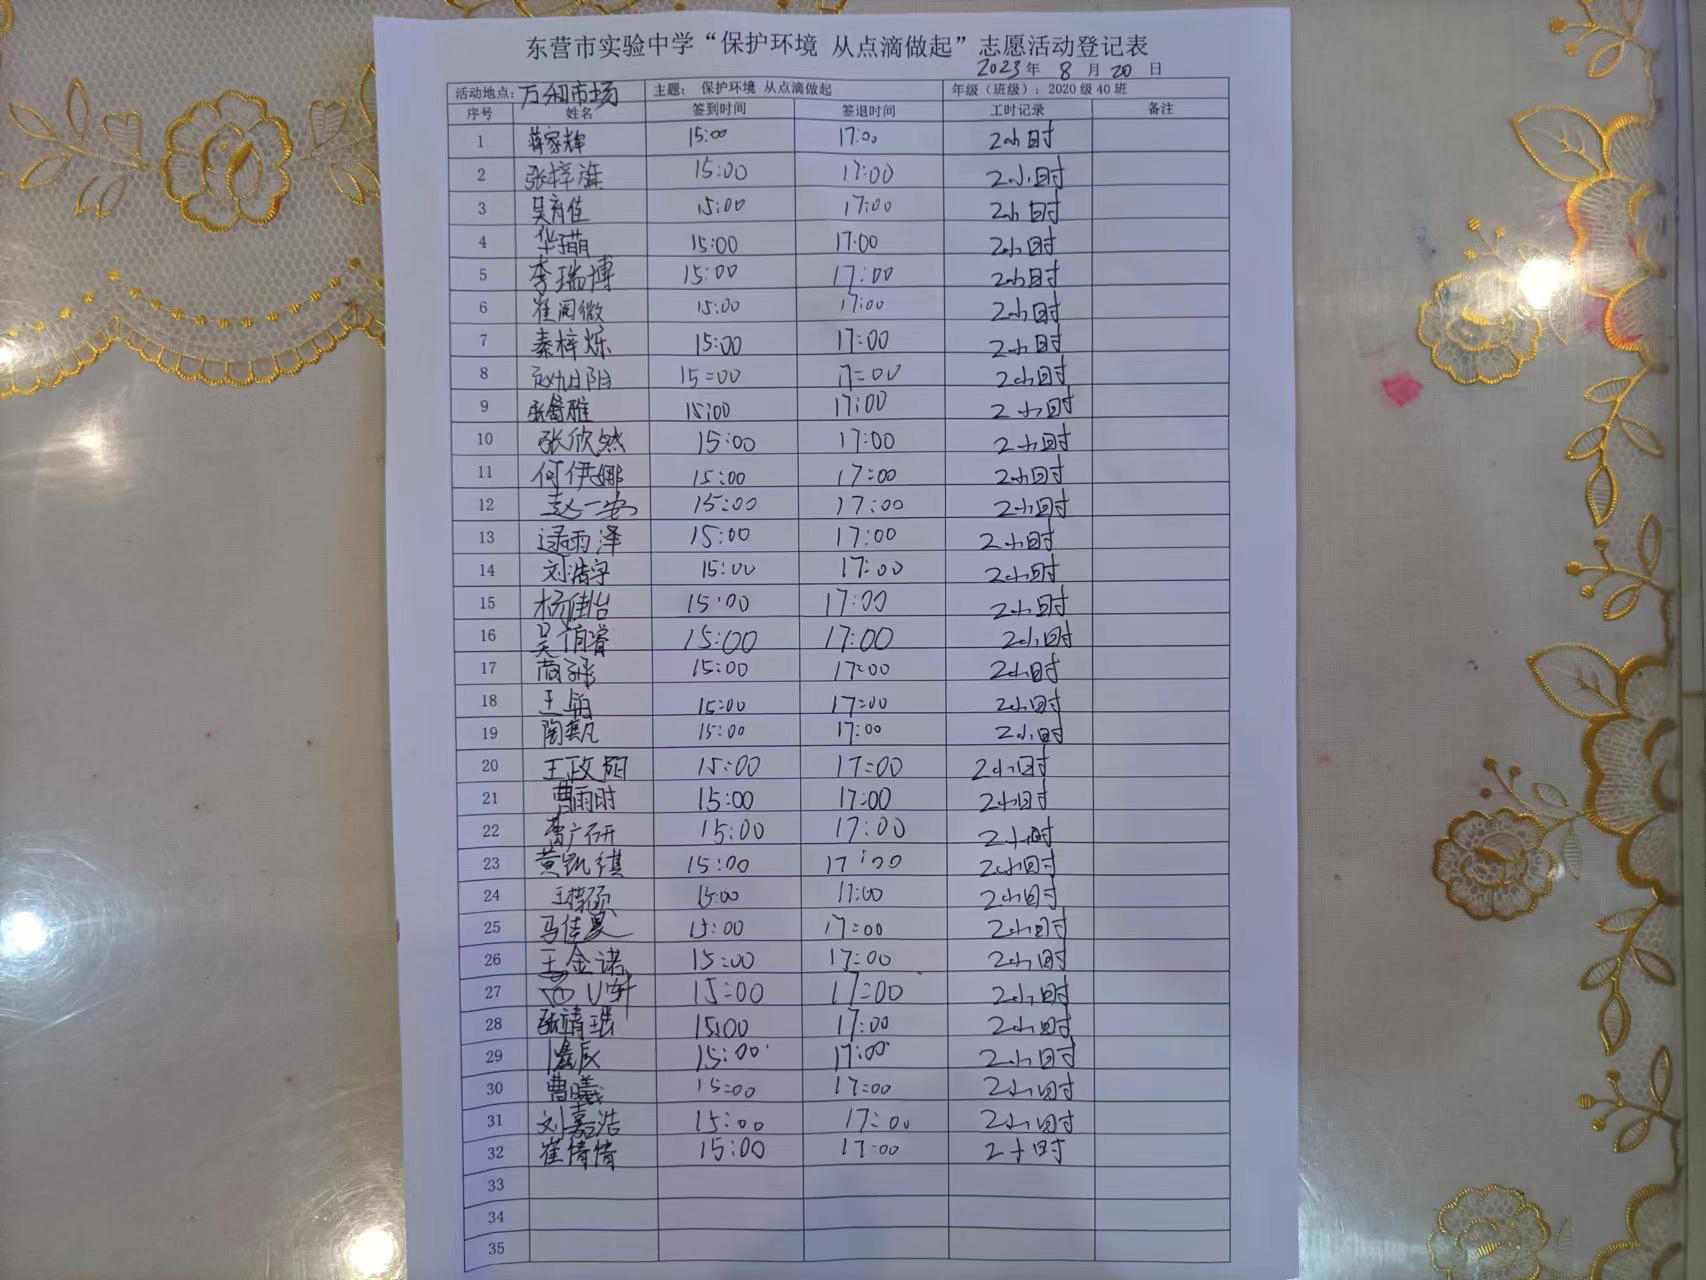 东营市实验中学“保护环境 从点滴做起”志愿活动登记表
2023年 8 月 20 日
活动地点：万 市场 主题： 保护环境 从点滴做起 年级（班级）：2020级40班
序号 姓名 签到时间 签退时间 工时记录 备注
1 蒋家辉 15:00 17:00 2小时
2 张梓 15:00 17:00 2小时
3 吴 佳 15:00 17:00 2小时
4 华 15:00 17:00 2小时
5 李瑞博 15:00 17:00 2小时
6 崔阅微 15:00 17:00 2小时
7 秦梓烁 15:00 17:00 2小时
8 赵旭阳 15:00 17:00 2小时
9 张舒雅 15:00 17:00 2小时
10 张欣然 15:00 17:00 2小时
11 何伊娜 15:00 17:00 2小时
12 赵一安 15:00 17:00 2小时
13 逯雨泽 15:00 17:00 2小时
14 刘浩宇 15:00 17:00 2小时
15 杨佳怡 15:00 17:00 2小时
16 吴佰睿 15:00 17:00 2小时
17 商 15:00 17:00 2小时
18 王 15:00 17:00 2小时
19 陶凯 15:00 17:00 2小时
20 王政 15:00 17:00 2小时
21 曹雨时 15:00 17:00 2小时
22 广研 15:00 17:00 2小时
23 黄凯祺 15:00 17:00 2小时
24 王 硕 15:00 17:00 2小时
25 马佳 15:00 17:00 2小时
26 王金诺 15:00 17:00 2小时
27 15:00 17:00 2小时
28 张靖 15:00 17:00 2小时
29 辰 15:00 17:00 2小时
30 曹曦 15:00 17:00 2小时
31 刘嘉浩 15:00 17:00 2小时
32 崔倩倩 15:00 17:00 2小时
33
34
35